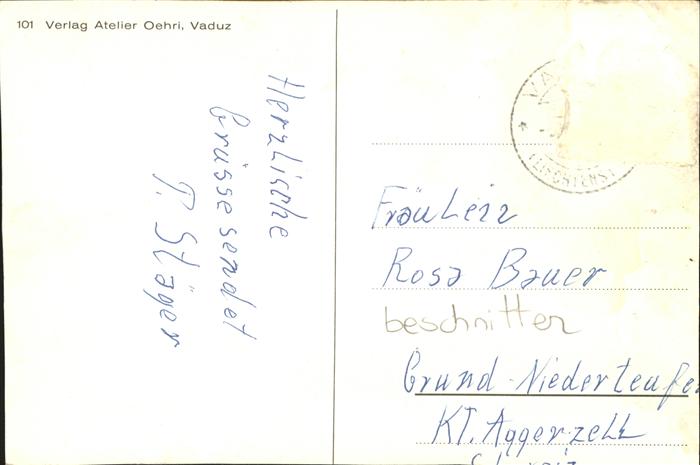 101 Verlag Atelier Oehri, Vaduz
Herzlische
Grüsse sendet
T. Stäger
VA
LIECHTENST
Fräulein
Rosa Bauer
beschnitten
Grund-Niederteufen
KT. Aggerzell